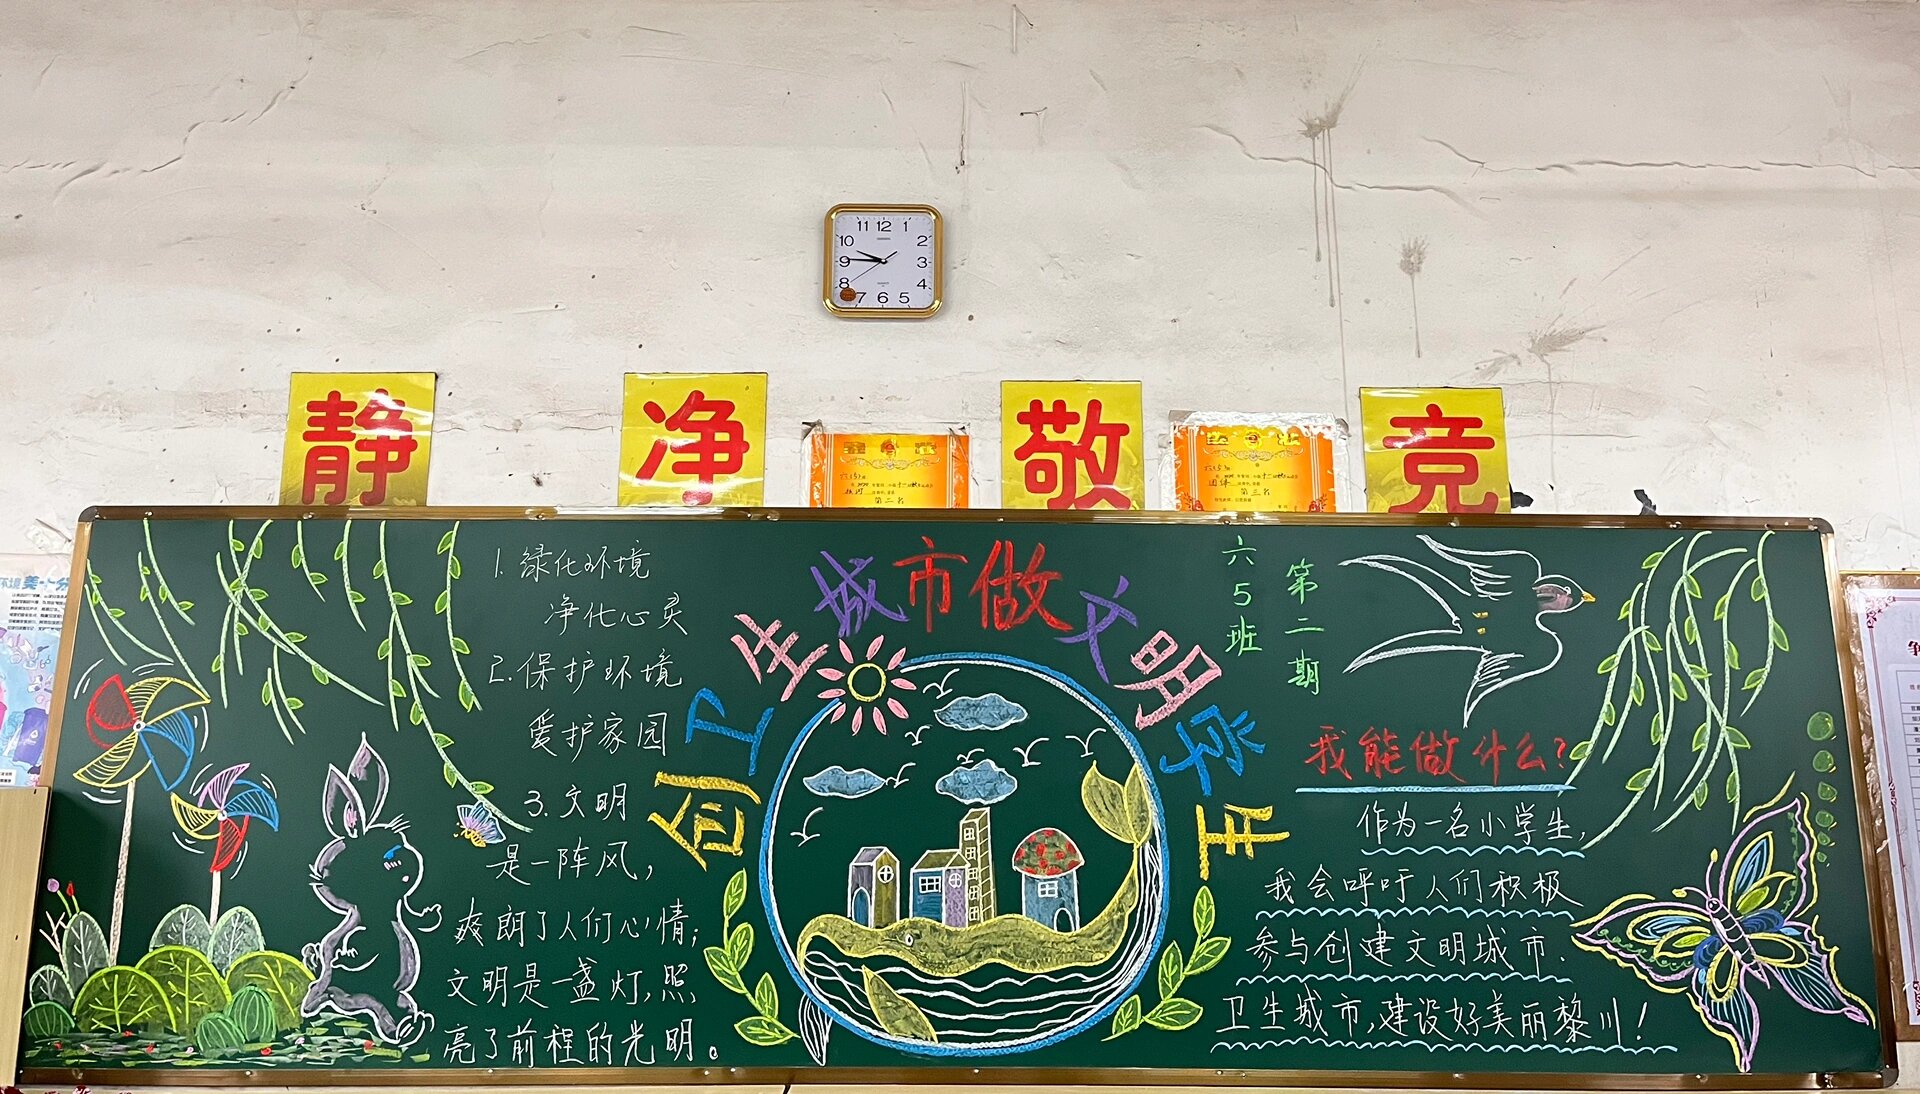 11 12 1
10 2
9 3
8 4
7 6 5
静 净 敬 竞
六(5)班
第二名
六(5)班
团体
第三名
1.绿化环境
净化心灵
2.保护环境
爱护家园
3.文明
是一阵风,
爽朗了人们心情;
文明是一盏灯,照
亮了前程的光明。
创卫生城市做文明学生
六5班
第二期
我能做什么?
作为一名小学生,
我会呼吁人们积极
参与创建文明城市、
卫生城市,建设好美丽黎川!